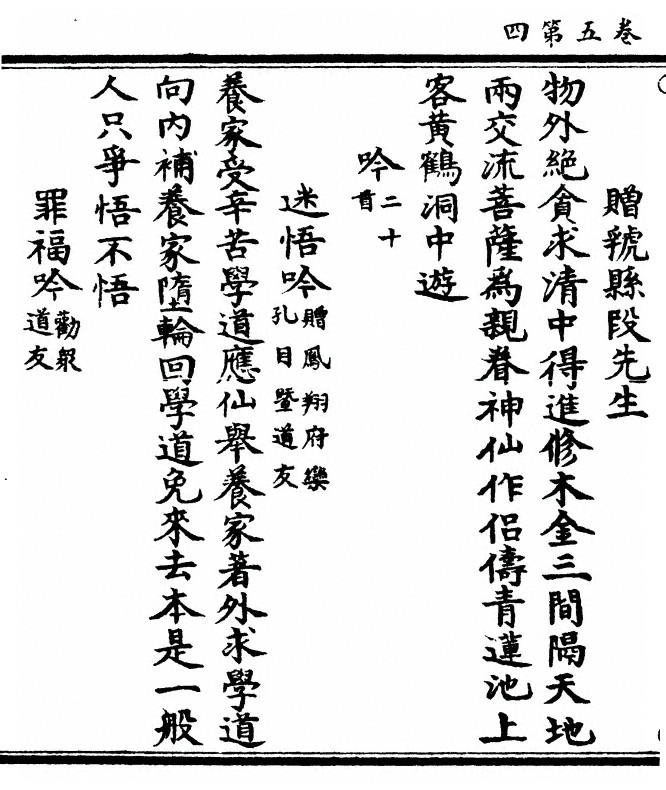 卷五第四
贈虢縣段先生
物外絕貪求清中得進修木金三間隔天地
兩交流菩薩為親眷神仙作侶儔青蓮池上
客黃鶴洞中遊
吟二十首
迷悟吟贈鳳翔府欒孔目暨道友
養家受辛苦學道應仙舉養家著外求學道
向內補養家墮輪回學道免來去本是一般
人只爭悟不悟
罪福吟勸眾道友